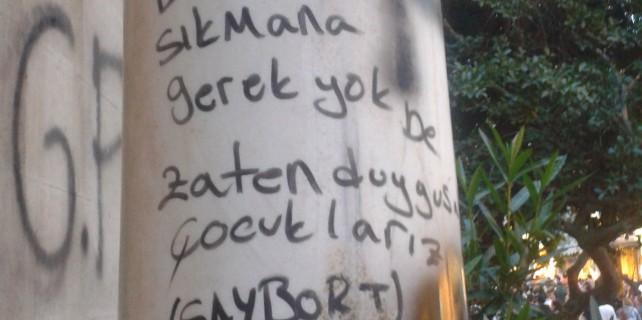 sıkmana
gerek yok
be
zaten duygusal
çocuklarız
(GAYBORT)
G.P